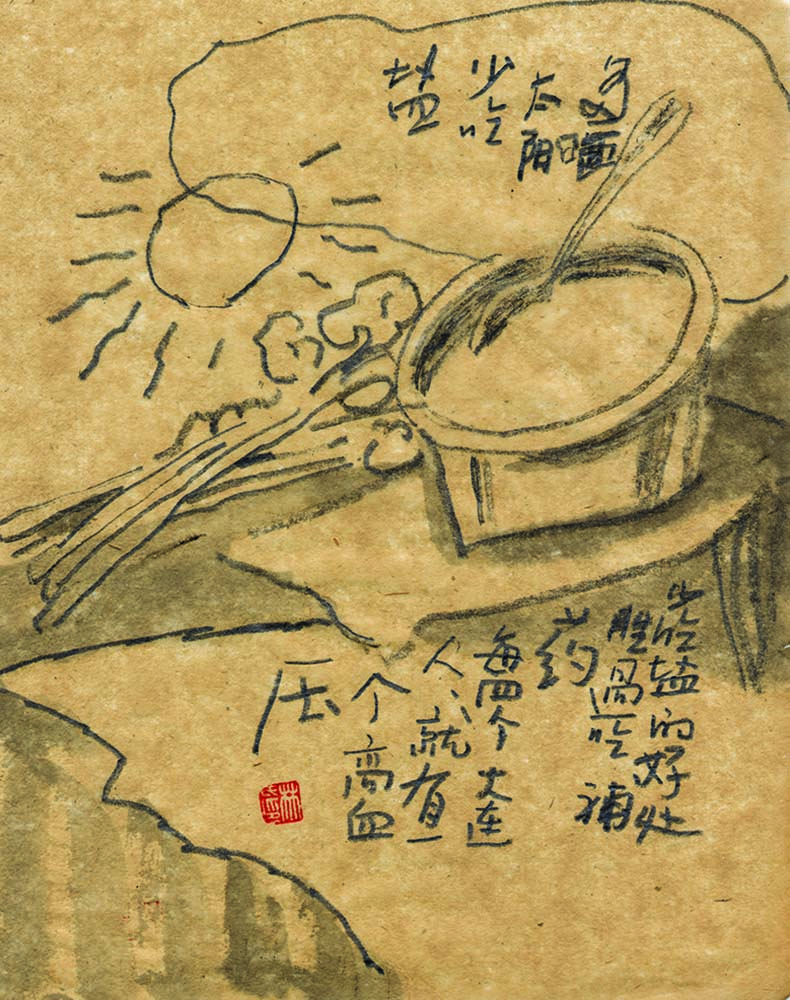 多晒
太阳
少吃
盐
少吃盐的好处
胜过吃补
药
每四个大连
人、就有一
个高血
压
林